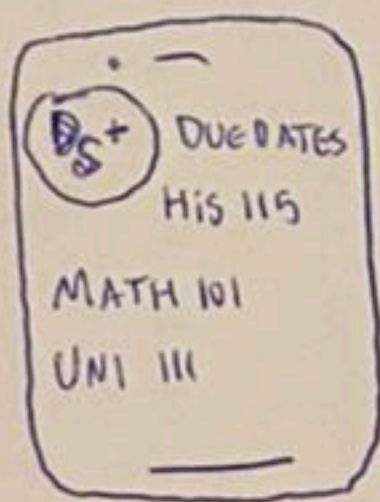 DS+
DUE DATES
His 115
MATH 101
UNI 111